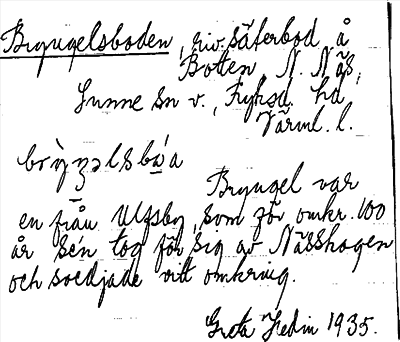 Bryngelsboden, riv. säterbod å
Botten N. Näs,
Sunne sn v., Fryksd. hd,
Värml. l.
Bryngel var
en från Ulfsby, som för omkr. 100
år se'n tog för sig av Nässkogen
och svedjade vitt omkring.
Greta Hedin 1935.